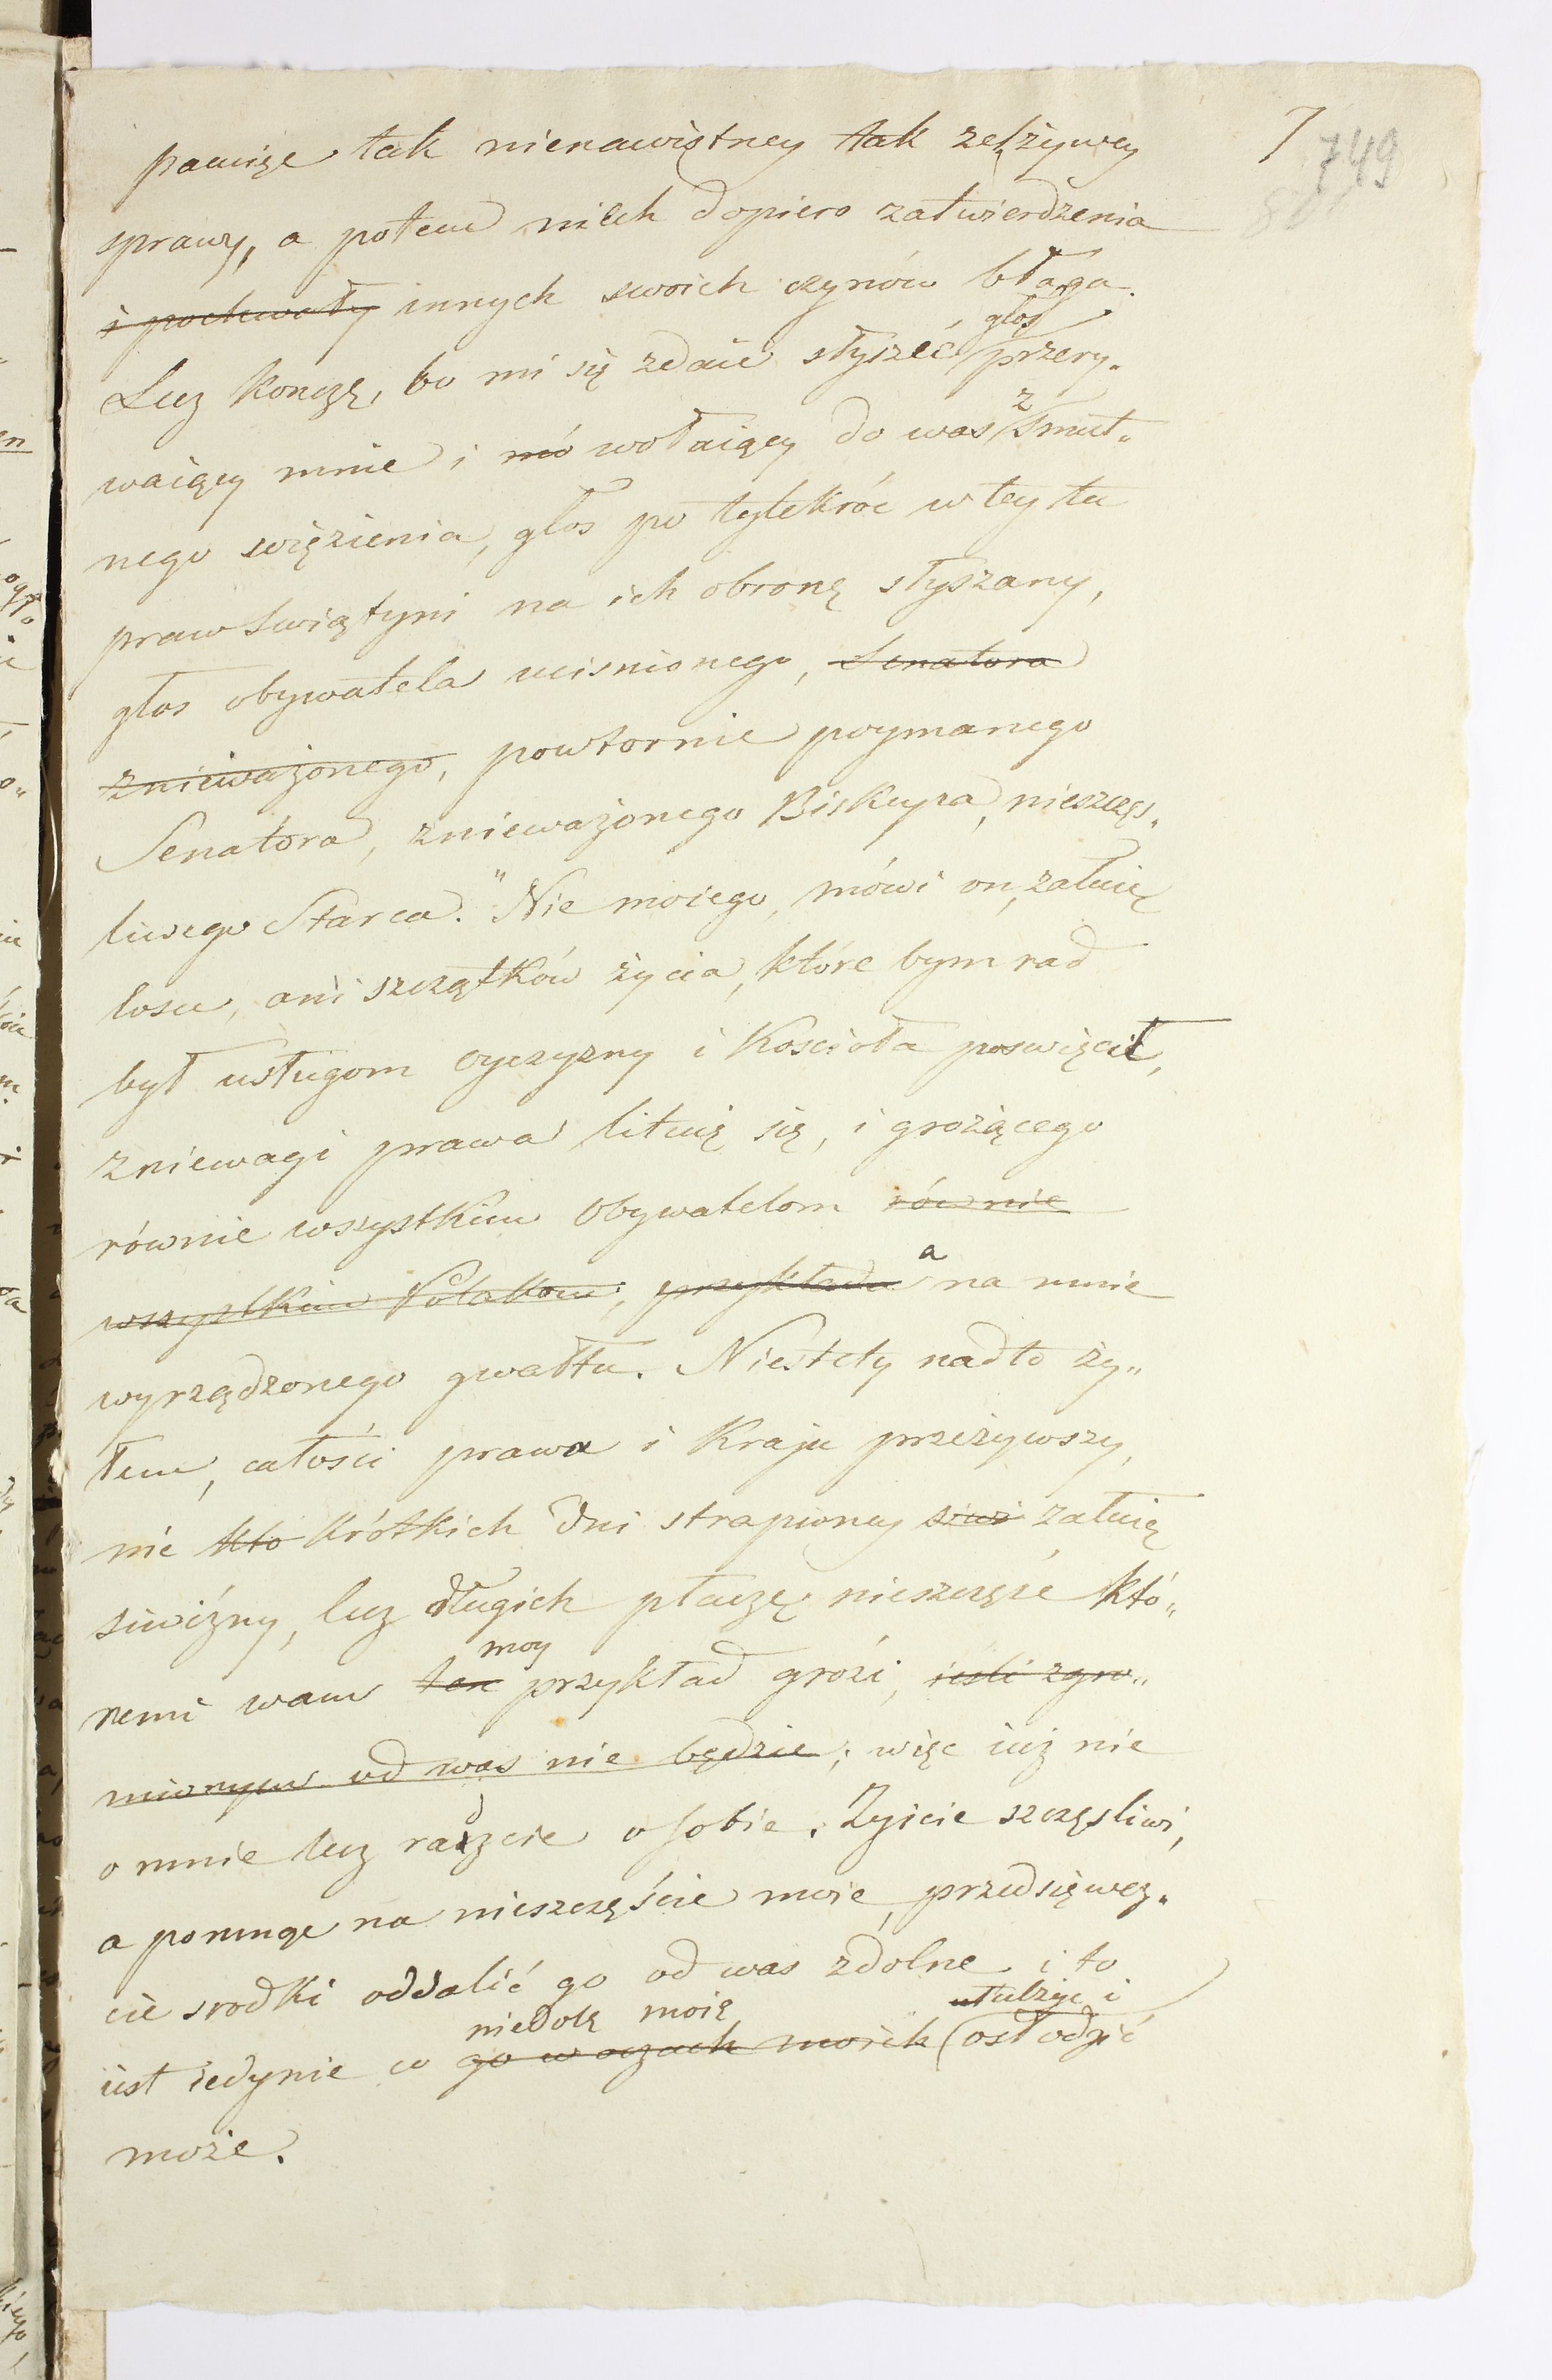 7
749
801
pamięć tak nienawistney tak zelżywey
sprawy, a potem niech dopiero zatwierdzenia
i pochwały innych swoich czynów błaga.
głos
Lecz konczę, bo mi się zdaie słyszeć przery„
z
waiący mnie i mó wołaiący do was smut„
nego więzienia, głos po tylekróć w tey tu
praw świątyni na ich obronę słyszany,
głos obywatela ucisnionego, Senatora
znieważonego, powtornie poymanego
Senatora, znieważonego Biskupa, nieszczęs„
liwego Starca. "Nie moiego, mówi on, załuię
losu, ani szczątków życia, które bym rad
był usługom oyczyzny i Koscioła poswięcił,
zniewagi prawa lituię się, i grożącego
równie wszystkim Obywatelom równie
a
wszystkim Polakom, przykładu na mnie
wyrządzonego gwałtu. Niestety nadto ży„
łem, całości prawa i Kraju przeżywszy,
nie kto krótkich dni strapioney siwi załuię
siwizny, lecz długich płaczę nieszczęść któ„
moy
remi wam ten przykład grozi, iesli zgro„
mionym od was nie będzie; więc iuż nie
o mnie lecz radzcie o sobie. Zyicie szczęsliwi,
a pomnąc na nieszczęście moie, przedsięwez„
cie srodki oddalić go od was zdolne i to
niedolę moię utulżyc i
iest iedynie co go w oczach moich osłodzić
może.